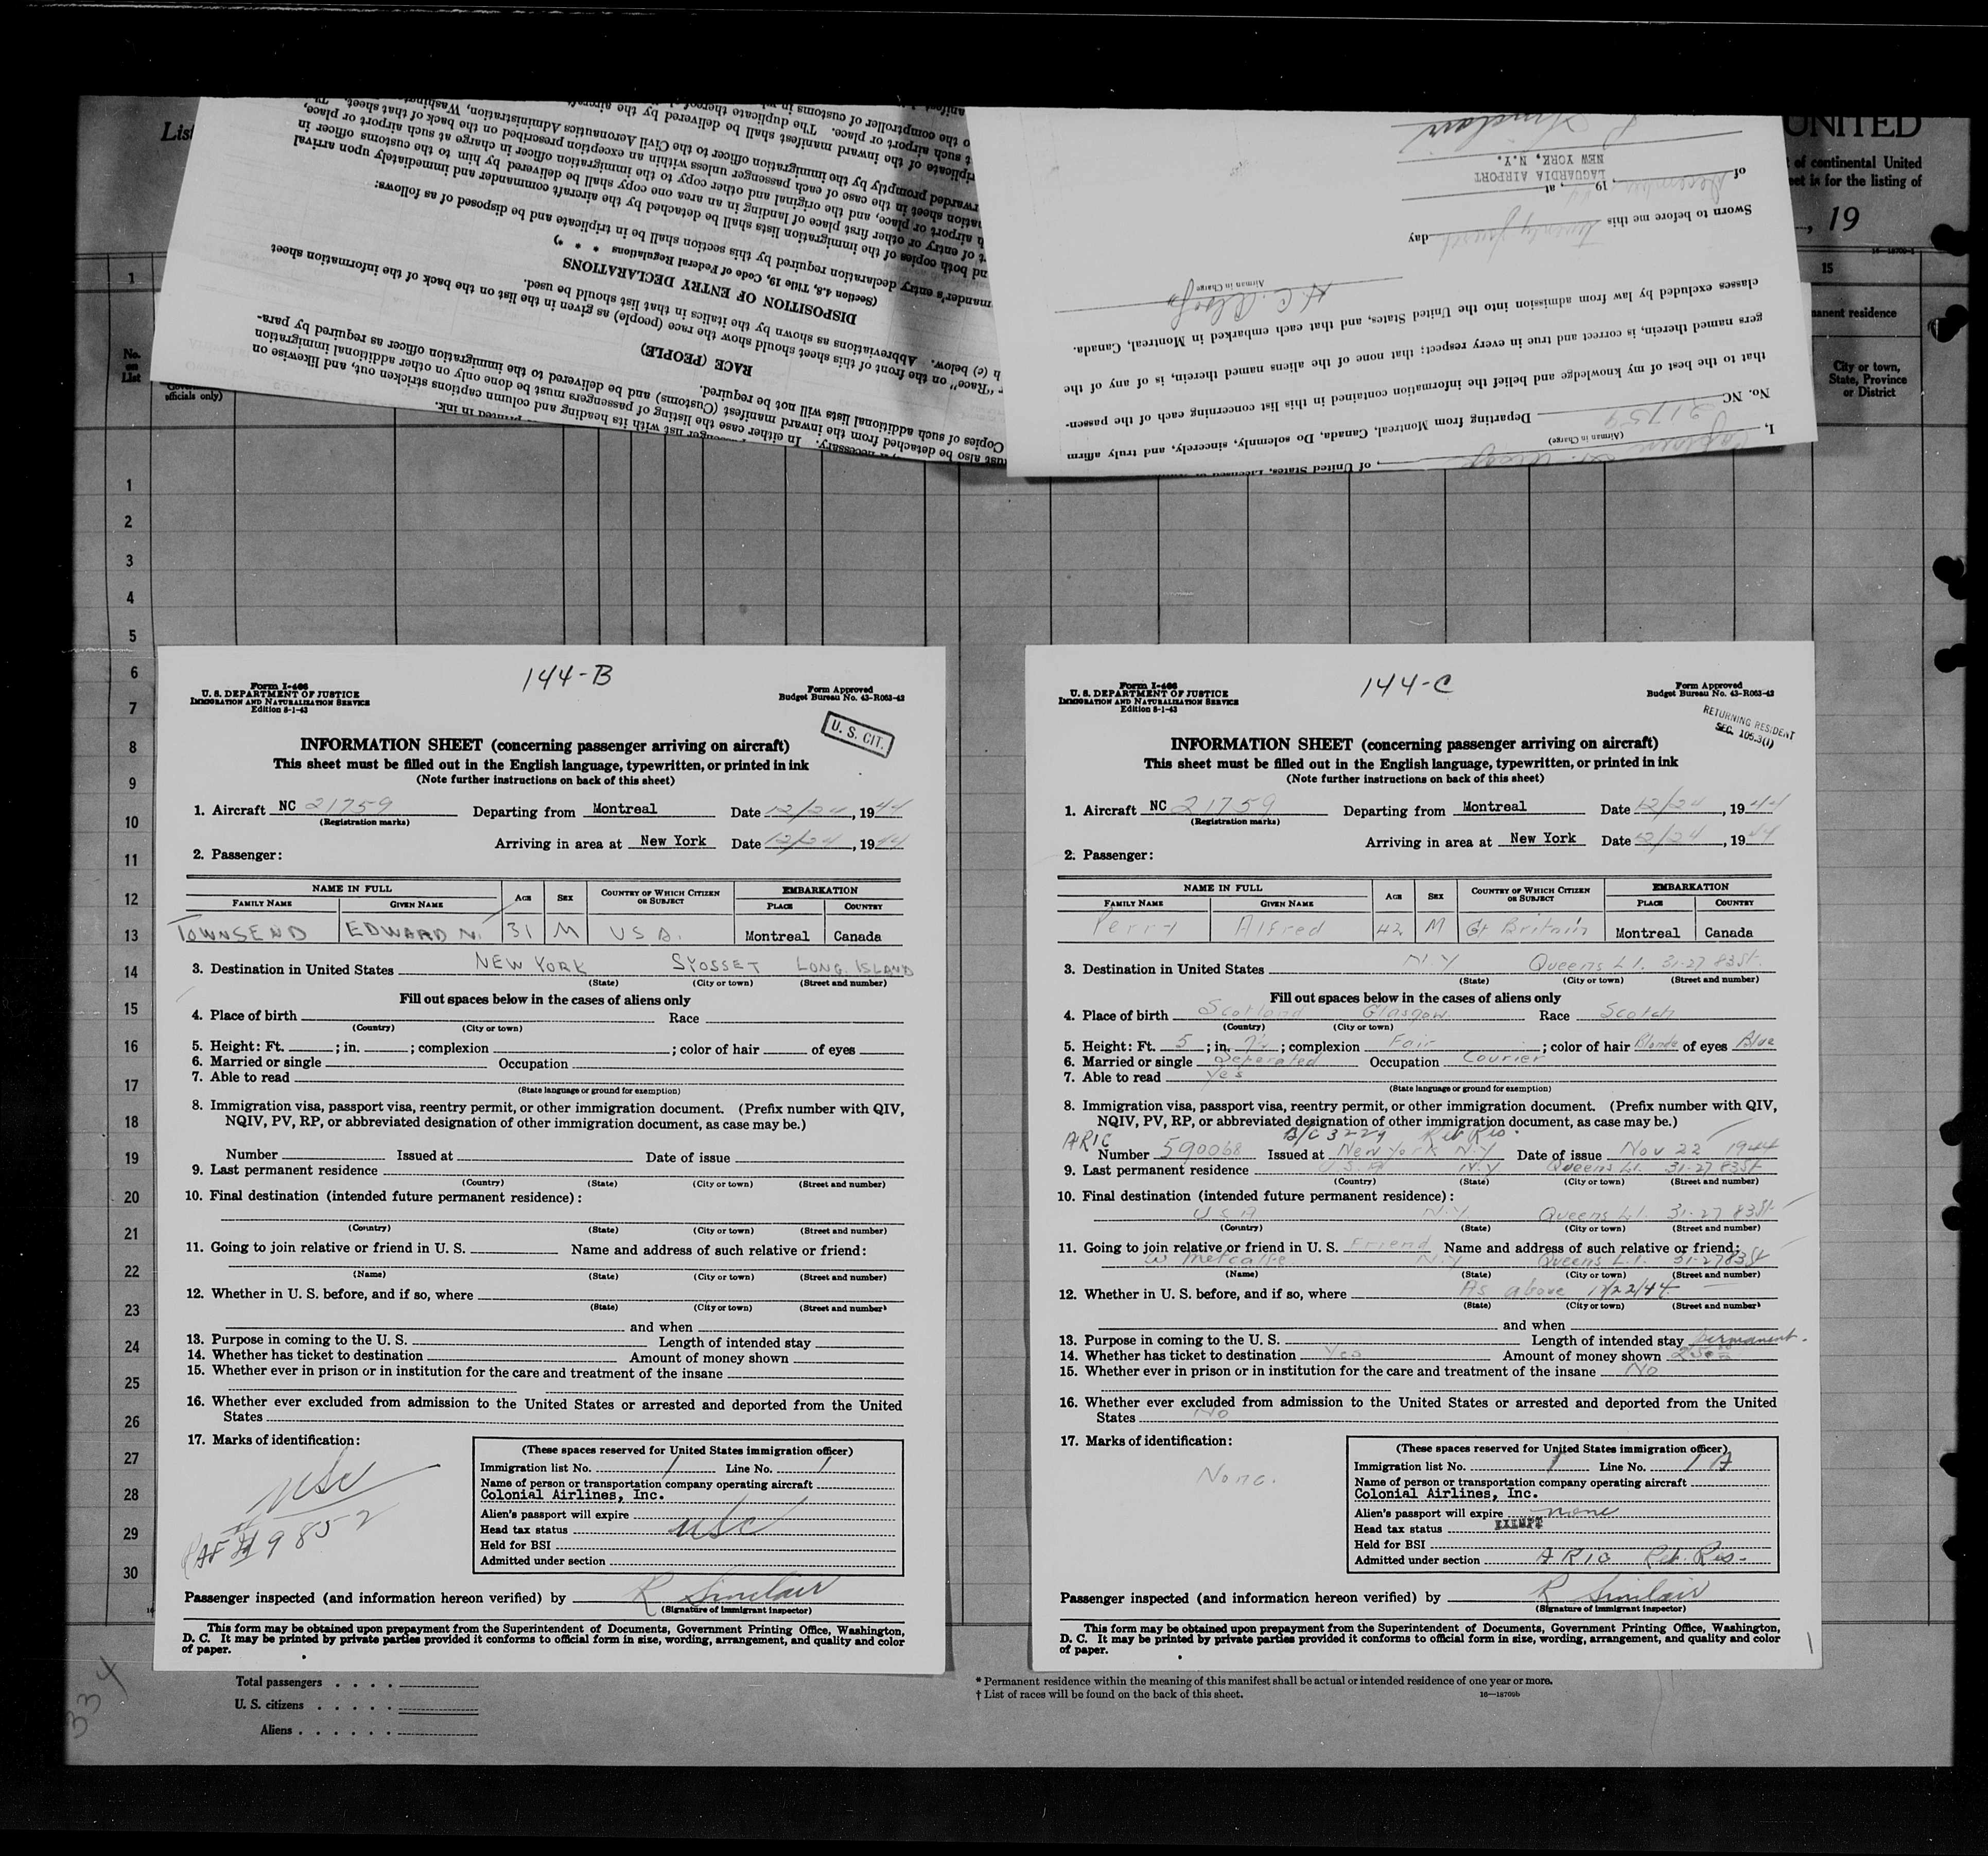 List
UNITED
of continental United
eet is for the listing of
, 19
15
1
No.
on
List
officials only)
City or town,
State, Province
or District
must also be detached from the inward manifest (Customs) and be delivered to the immigration officer as required by para-
Copies of such additional lists will not be required.
RACE (PEOPLE)
"Race" on the front of this sheet should show the race (people) as given in the list on the back of the information sheet
h (c) below. Abbreviations as shown by the italics in that list should be used.
DISPOSITION OF ENTRY DECLARATIONS
(Section 4.8, Title 19, Code of Federal Regulations * * *)
mander's entry declaration required by this section shall be in triplicate and be disposed of as follows:
nd both copies of the immigration lists shall be detached by the aircraft commander and immediately upon arrival
t of entry or other first place of landing in an area one copy shall be delivered by him to the customs officer in
h airport or place, and the original and other copy to the immigration officer in charge at such airport or place,
ation sheet in the case of each passenger unless within an exception prescribed on the back of that sheet.
rwarded promptly by the immigration officer to the Civil Aeronautics Administration,
riplicate of the inward manifest shall be delivered by the
t such airport or place. The duplicate thereof
o the comptroller of customs in
I, Captain
of United States,
(Airman in Charge)
No. NC 21759 Departing from Montreal, Canada, Do solemnly, sincerely, and truly affirm
that to the best of my knowledge and belief the information contained in this list concerning each of the passen-
gers named therein, is correct and true in every respect; that none of the aliens named therein, is of any of the
classes excluded by law from admission into the United States, and that each embarked in Montreal, Canada.
Airman in Charge
Sworn to before me this day
of December 19 , at LAGUARDIA AIRPORT
NEW YORK, N.Y.
R Sinclair
1
2
3
4
5
6
7
8
9
10
11
12
13
14
15
16
17
18
19
20
21
22
23
24
25
26
27
28
29
30
144-B
Form I-466
U. S. DEPARTMENT OF JUSTICE
IMMIGRATION AND NATURALIZATION SERVICE
Edition 8-1-43
Form Approved
Budget Bureau No. 43-R063-42
U. S. CIT.
INFORMATION SHEET (concerning passenger arriving on aircraft)
This sheet must be filled out in the English language, typewritten, or printed in ink
(Note further instructions on back of this sheet)
1. Aircraft NC 21759 Departing from Montreal Date 12/24, 1944
(Registration marks)
Arriving in area at New York Date 12/24, 1944
2. Passenger:
NAME IN FULL AGE SEX COUNTRY OF WHICH CITIZEN OR SUBJECT EMBARKATION
FAMILY NAME GIVEN NAME PLACE COUNTRY
TOWNSEND EDWARD N. 31 M USA. Montreal Canada
3. Destination in United States NEW YORK SYOSSET LONG ISLAND
(State) (City or town) (Street and number)
Fill out spaces below in the cases of aliens only
4. Place of birth Race
(Country) (City or town)
5. Height: Ft. ; in. ; complexion ; color of hair of eyes
6. Married or single Occupation
7. Able to read
(State language or ground for exemption)
8. Immigration visa, passport visa, reentry permit, or other immigration document. (Prefix number with QIV,
NQIV, PV, RP, or abbreviated designation of other immigration document, as case may be.)
Number Issued at Date of issue
9. Last permanent residence
(Country) (State) (City or town) (Street and number)
10. Final destination (intended future permanent residence):
(Country) (State) (City or town) (Street and number)
11. Going to join relative or friend in U. S. Name and address of such relative or friend:
(Name) (State) (City or town) (Street and number)
12. Whether in U. S. before, and if so, where
(State) (City or town) (Street and number)
and when
13. Purpose in coming to the U. S. Length of intended stay
14. Whether has ticket to destination Amount of money shown
15. Whether ever in prison or in institution for the care and treatment of the insane
16. Whether ever excluded from admission to the United States or arrested and deported from the United
States
17. Marks of identification:
usc
9852
(These spaces reserved for United States immigration officer)
Immigration list No. 1 Line No. 1
Name of person or transportation company operating aircraft
Colonial Airlines, Inc.
Alien's passport will expire
Head tax status usc
Held for BSI
Admitted under section
Passenger inspected (and information hereon verified) by R Sinclair
(Signature of Immigrant Inspector)
This form may be obtained upon prepayment from the Superintendent of Documents, Government Printing Office, Washington,
D. C. It may be printed by private parties provided it conforms to official form in size, wording, arrangement, and quality and color
of paper.
144-C
Form I-466
U. S. DEPARTMENT OF JUSTICE
IMMIGRATION AND NATURALIZATION SERVICE
Edition 8-1-43
Form Approved
Budget Bureau No. 43-R063-42
RETURNING RESIDENT
SEC. 105.3(1)
INFORMATION SHEET (concerning passenger arriving on aircraft)
This sheet must be filled out in the English language, typewritten, or printed in ink
(Note further instructions on back of this sheet)
1. Aircraft NC 21759 Departing from Montreal Date 12/24, 1944
(Registration marks)
Arriving in area at New York Date 12/24, 1944
2. Passenger:
NAME IN FULL AGE SEX COUNTRY OF WHICH CITIZEN OR SUBJECT EMBARKATION
FAMILY NAME GIVEN NAME PLACE COUNTRY
Perry Alfred 42 M Gt Britain Montreal Canada
3. Destination in United States N.Y Queens L.I. 31-27 83 St.
(State) (City or town) (Street and number)
Fill out spaces below in the cases of aliens only
4. Place of birth Scotland Glasgow Race Scotch
(Country) (City or town)
5. Height: Ft. 5 ; in. 7½ ; complexion Fair ; color of hair Blonde of eyes Blue
6. Married or single Seperated Occupation Courier
7. Able to read Yes
(State language or ground for exemption)
8. Immigration visa, passport visa, reentry permit, or other immigration document. (Prefix number with QIV,
NQIV, PV, RP, or abbreviated designation of other immigration document, as case may be.)
ARIC Ret Res.
Number 590068 Issued at New York N.Y Date of issue Nov 22 1944
9. Last permanent residence U.S.A N.Y Queens L.I. 31-27 83 St
(Country) (State) (City or town) (Street and number)
10. Final destination (intended future permanent residence):
U S A N.Y. Queens L.I. 31-27 83 St.
(Country) (State) (City or town) (Street and number)
11. Going to join relative or friend in U. S. Friend Name and address of such relative or friend:
W Metcalfe. N.Y Queens L.I. 31-27 83 St
(Name) (State) (City or town) (Street and number)
12. Whether in U. S. before, and if so, where As above 12/22/44
(State) (City or town) (Street and number)
and when
13. Purpose in coming to the U. S. Length of intended stay permanent.
14. Whether has ticket to destination Yes Amount of money shown
15. Whether ever in prison or in institution for the care and treatment of the insane No
16. Whether ever excluded from admission to the United States or arrested and deported from the United
States No
17. Marks of identification:
None.
(These spaces reserved for United States immigration officer)
Immigration list No. 1 Line No. 1A
Name of person or transportation company operating aircraft
Colonial Airlines, Inc.
Alien's passport will expire none
Head tax status EXEMPT
Held for BSI
Admitted under section ARIC Ret. Res.
Passenger inspected (and information hereon verified) by R Sinclair
(Signature of Immigrant Inspector)
This form may be obtained upon prepayment from the Superintendent of Documents, Government Printing Office, Washington,
D. C. It may be printed by private parties provided it conforms to official form in size, wording, arrangement, and quality and color
of paper.
334
Total passengers . . . .
U. S. citizens . . . . .
Aliens . . . . . .
* Permanent residence within the meaning of this manifest shall be actual or intended residence of one year or more.
† List of races will be found on the back of this sheet.
16—18709b